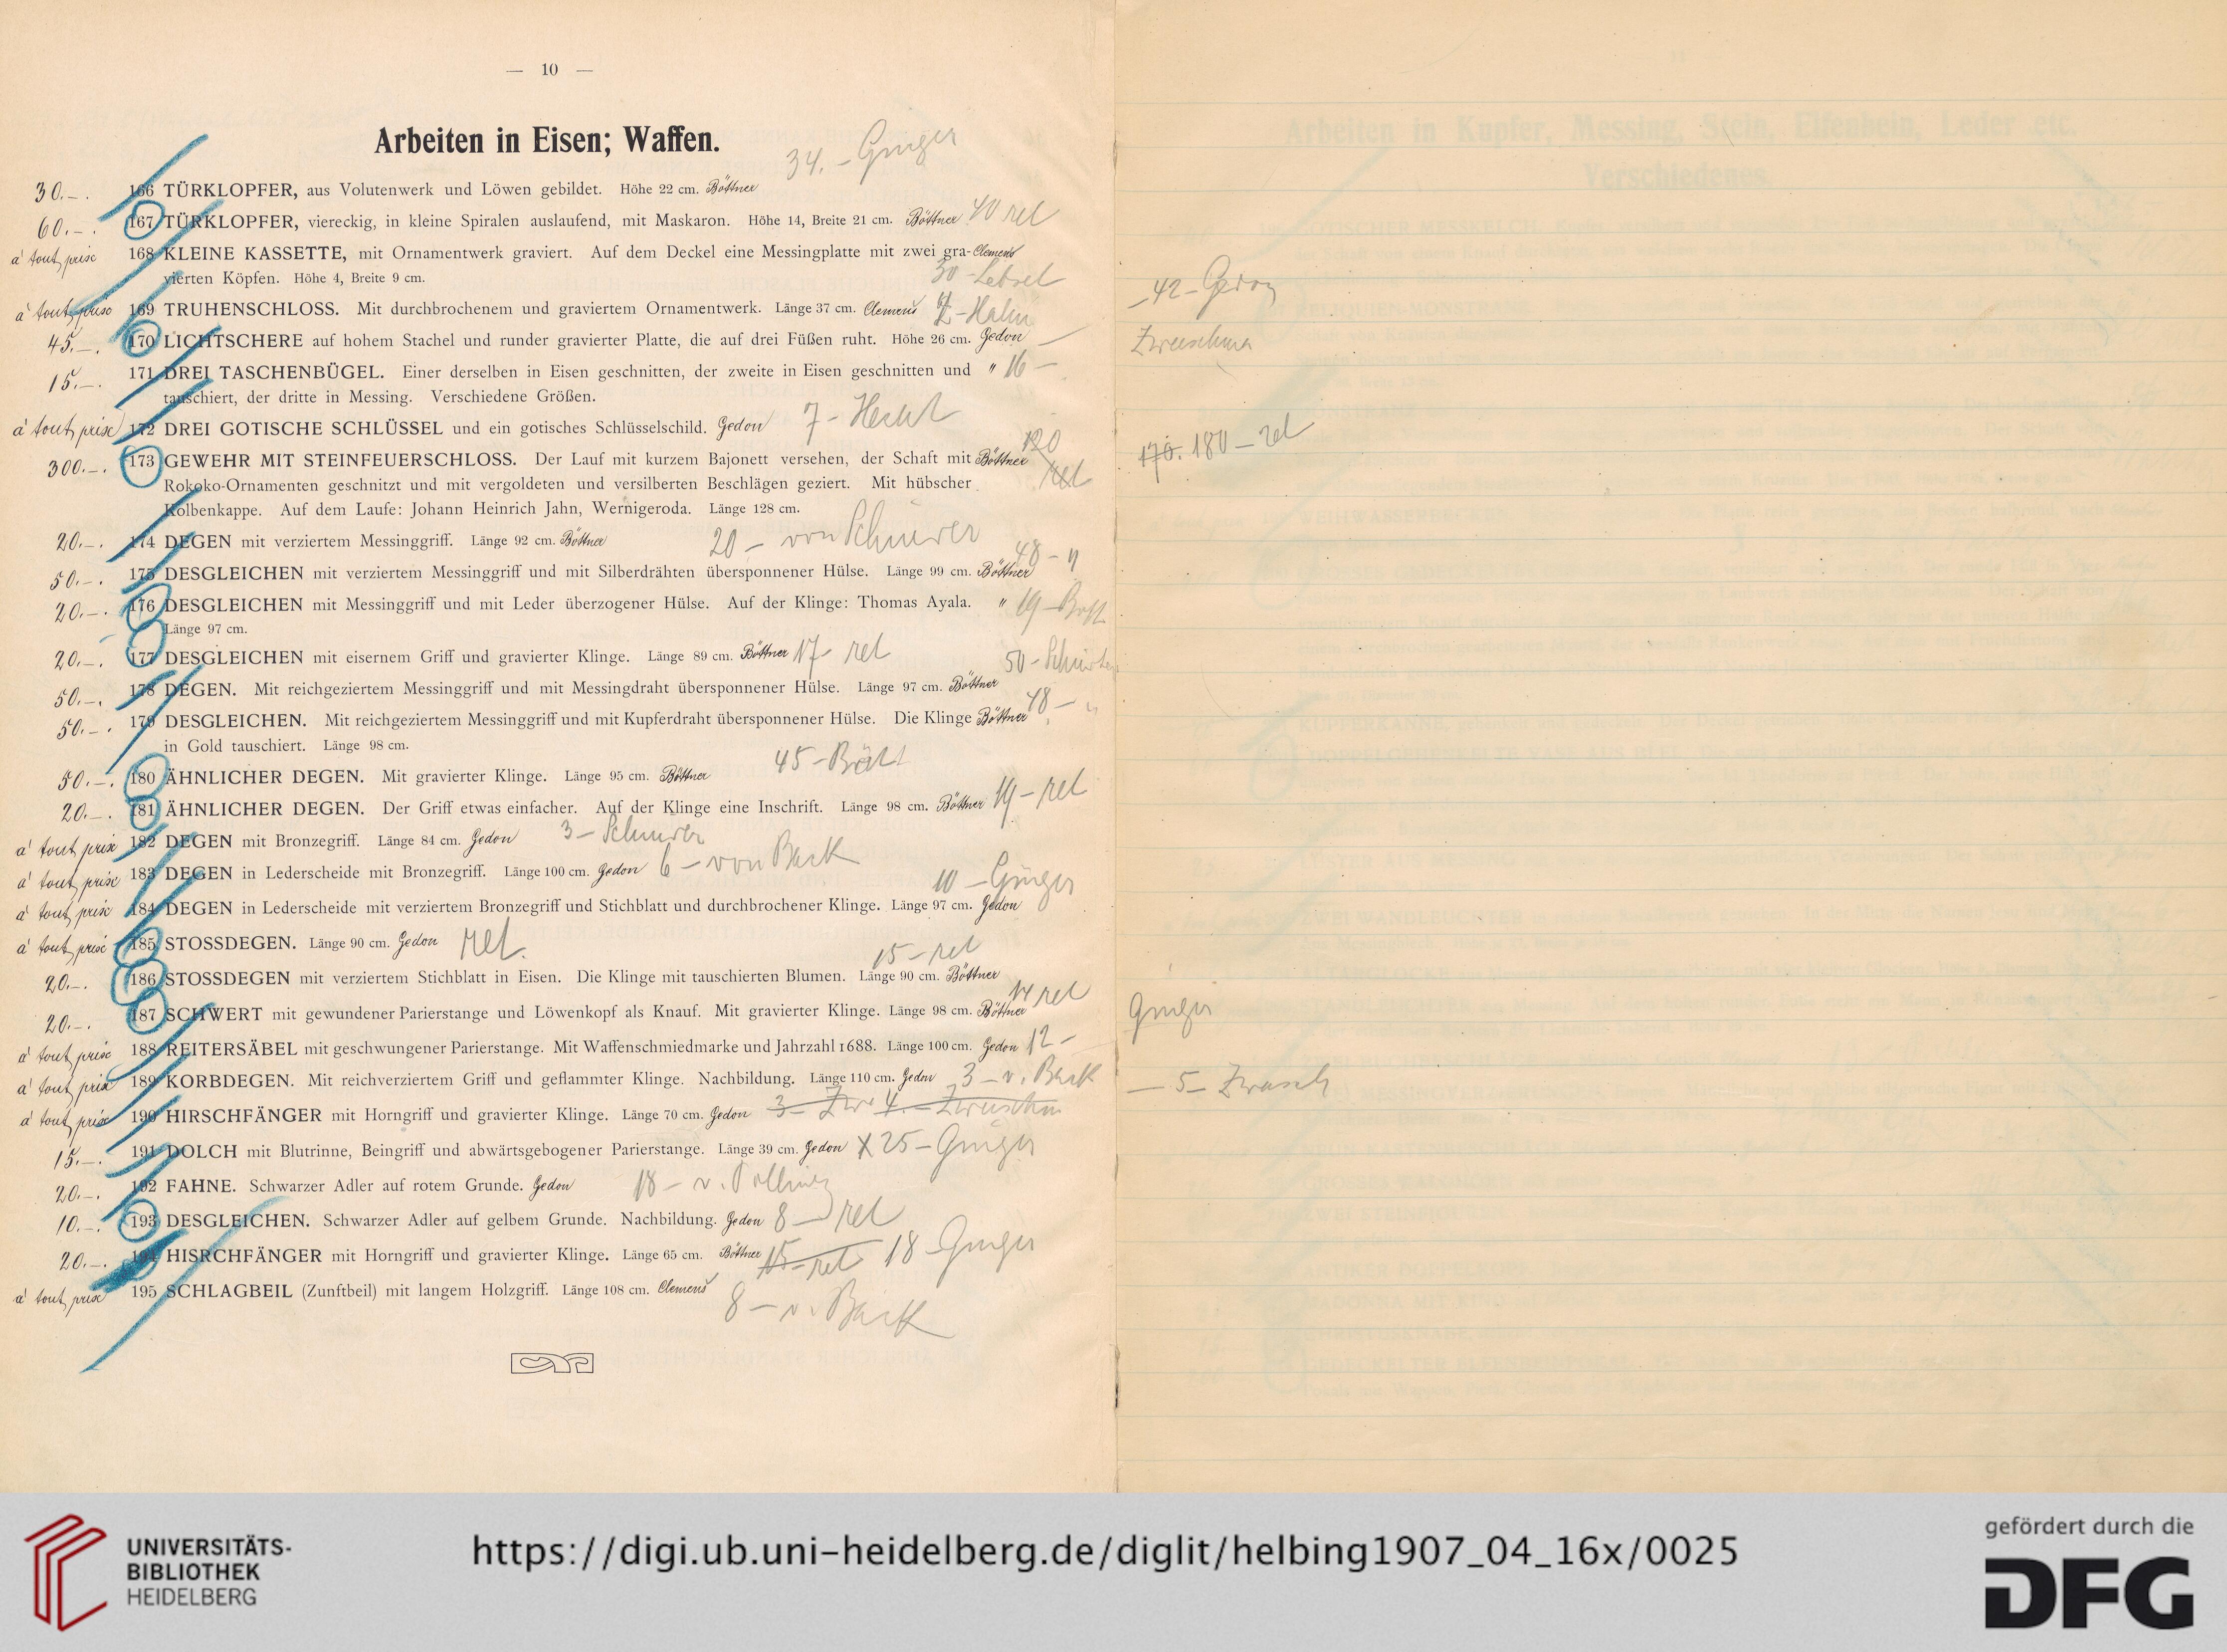 — 10 —
Arbeiten in Eisen; Waffen.
34.- Ginger
30.-. 166 TÜRKLOPFER, aus Volutenwerk und Löwen gebildet. Höhe 22 cm. Böttner
60.-. 167 TÜRKLOPFER, viereckig, in kleine Spiralen auslaufend, mit Maskaron. Höhe 14, Breite 21 cm. Böttner 40 ret
à tout prix 168 KLEINE KASSETTE, mit Ornamentwerk graviert. Auf dem Deckel eine Messingplatte mit zwei gra- Clemens
vierten Köpfen. Höhe 4, Breite 9 cm. 30 -
à tout prix 169 TRUHENSCHLOSS. Mit durchbrochenem und graviertem Ornamentwerk. Länge 37 cm. Clemens - Hahn
45.-. 170 LICHTSCHERE auf hohem Stachel und runder gravierter Platte, die auf drei Füßen ruht. Höhe 26 cm. Gedon — 42 - Gedon
15.-. 171 DREI TASCHENBÜGEL. Einer derselben in Eisen geschnitten, der zweite in Eisen geschnitten und " 16 -
tauschiert, der dritte in Messing. Verschiedene Größen.
à tout prix 172 DREI GOTISCHE SCHLÜSSEL und ein gotisches Schlüsselschild. Gedon 7 - Hecht
300.-. 173 GEWEHR MIT STEINFEUERSCHLOSS. Der Lauf mit kurzem Bajonett versehen, der Schaft mit Böttner 120 ret 170. 180 - ret
Rokoko-Ornamenten geschnitzt und mit vergoldeten und versilberten Beschlägen geziert. Mit hübscher
Kolbenkappe. Auf dem Laufe: Johann Heinrich Jahn, Wernigeroda. Länge 128 cm.
20.-. 174 DEGEN mit verziertem Messinggriff. Länge 92 cm. Böttner 20 - von Schnirer
50.-. 175 DESGLEICHEN mit verziertem Messinggriff und mit Silberdrähten übersponnener Hülse. Länge 99 cm. Böttner 48 - "
20.-. 176 DESGLEICHEN mit Messinggriff und mit Leder überzogener Hülse. Auf der Klinge: Thomas Ayala. " 19 -
Länge 97 cm.
20.-. 177 DESGLEICHEN mit eisernem Griff und gravierter Klinge. Länge 89 cm. Böttner 17 - ret
50.-. 178 DEGEN. Mit reichgeziertem Messinggriff und mit Messingdraht übersponnener Hülse. Länge 97 cm. Böttner 50 -
50.-. 179 DESGLEICHEN. Mit reichgeziertem Messinggriff und mit Kupferdraht übersponnener Hülse. Die Klinge Böttner 48 - "
in Gold tauschiert. Länge 98 cm.
50.-. 180 ÄHNLICHER DEGEN. Mit gravierter Klinge. Länge 95 cm. Böttner 45 - Bött
20.-. 181 ÄHNLICHER DEGEN. Der Griff etwas einfacher. Auf der Klinge eine Inschrift. Länge 98 cm. Böttner 19 - ret
à tout prix 182 DEGEN mit Bronzegriff. Länge 84 cm. Gedon 3 - Schnirer
à tout prix 183 DEGEN in Lederscheide mit Bronzegriff. Länge 100 cm. Gedon 6 - von Back
à tout prix 184 DEGEN in Lederscheide mit verziertem Bronzegriff und Stichblatt und durchbrochener Klinge. Länge 97 cm. Gedon 10 - Ginger
à tout prix 185 STOSSDEGEN. Länge 90 cm. Gedon ret.
20.-. 186 STOSSDEGEN mit verziertem Stichblatt in Eisen. Die Klinge mit tauschierten Blumen. Länge 90 cm. Böttner 15 - ret
20.-. 187 SCHWERT mit gewundener Parierstange und Löwenkopf als Knauf. Mit gravierter Klinge. Länge 98 cm. Böttner 14 ret
à tout prix 188 REITERSÄBEL mit geschwungener Parierstange. Mit Waffenschmiedmarke und Jahrzahl 1688. Länge 100 cm. Gedon 12 - Ginger
à tout prix 189 KORBDEGEN. Mit reichverziertem Griff und geflammter Klinge. Nachbildung. Länge 110 cm. Gedon 3 - v. Back
à tout prix 190 HIRSCHFÄNGER mit Horngriff und gravierter Klinge. Länge 70 cm. Gedon 3 - 4. - — 5 -
15.-. 191 DOLCH mit Blutrinne, Beingriff und abwärtsgebogener Parierstange. Länge 39 cm. Gedon X 25 - Ginger
20.-. 192 FAHNE. Schwarzer Adler auf rotem Grunde. Gedon 18 - v.
10.-. 193 DESGLEICHEN. Schwarzer Adler auf gelbem Grunde. Nachbildung. Gedon 8 - ret
20.-. 194 HISRCHFÄNGER mit Horngriff und gravierter Klinge. Länge 65 cm. Böttner 15 - ret 18 Ginger
à tout prix 195 SCHLAGBEIL (Zunftbeil) mit langem Holzgriff. Länge 108 cm. Clemens
8 - v. Back
UNIVERSITÄTS-
BIBLIOTHEK
HEIDELBERG
https://digi.ub.uni-heidelberg.de/diglit/helbing1907_04_16x/0025
gefördert durch die
DFG